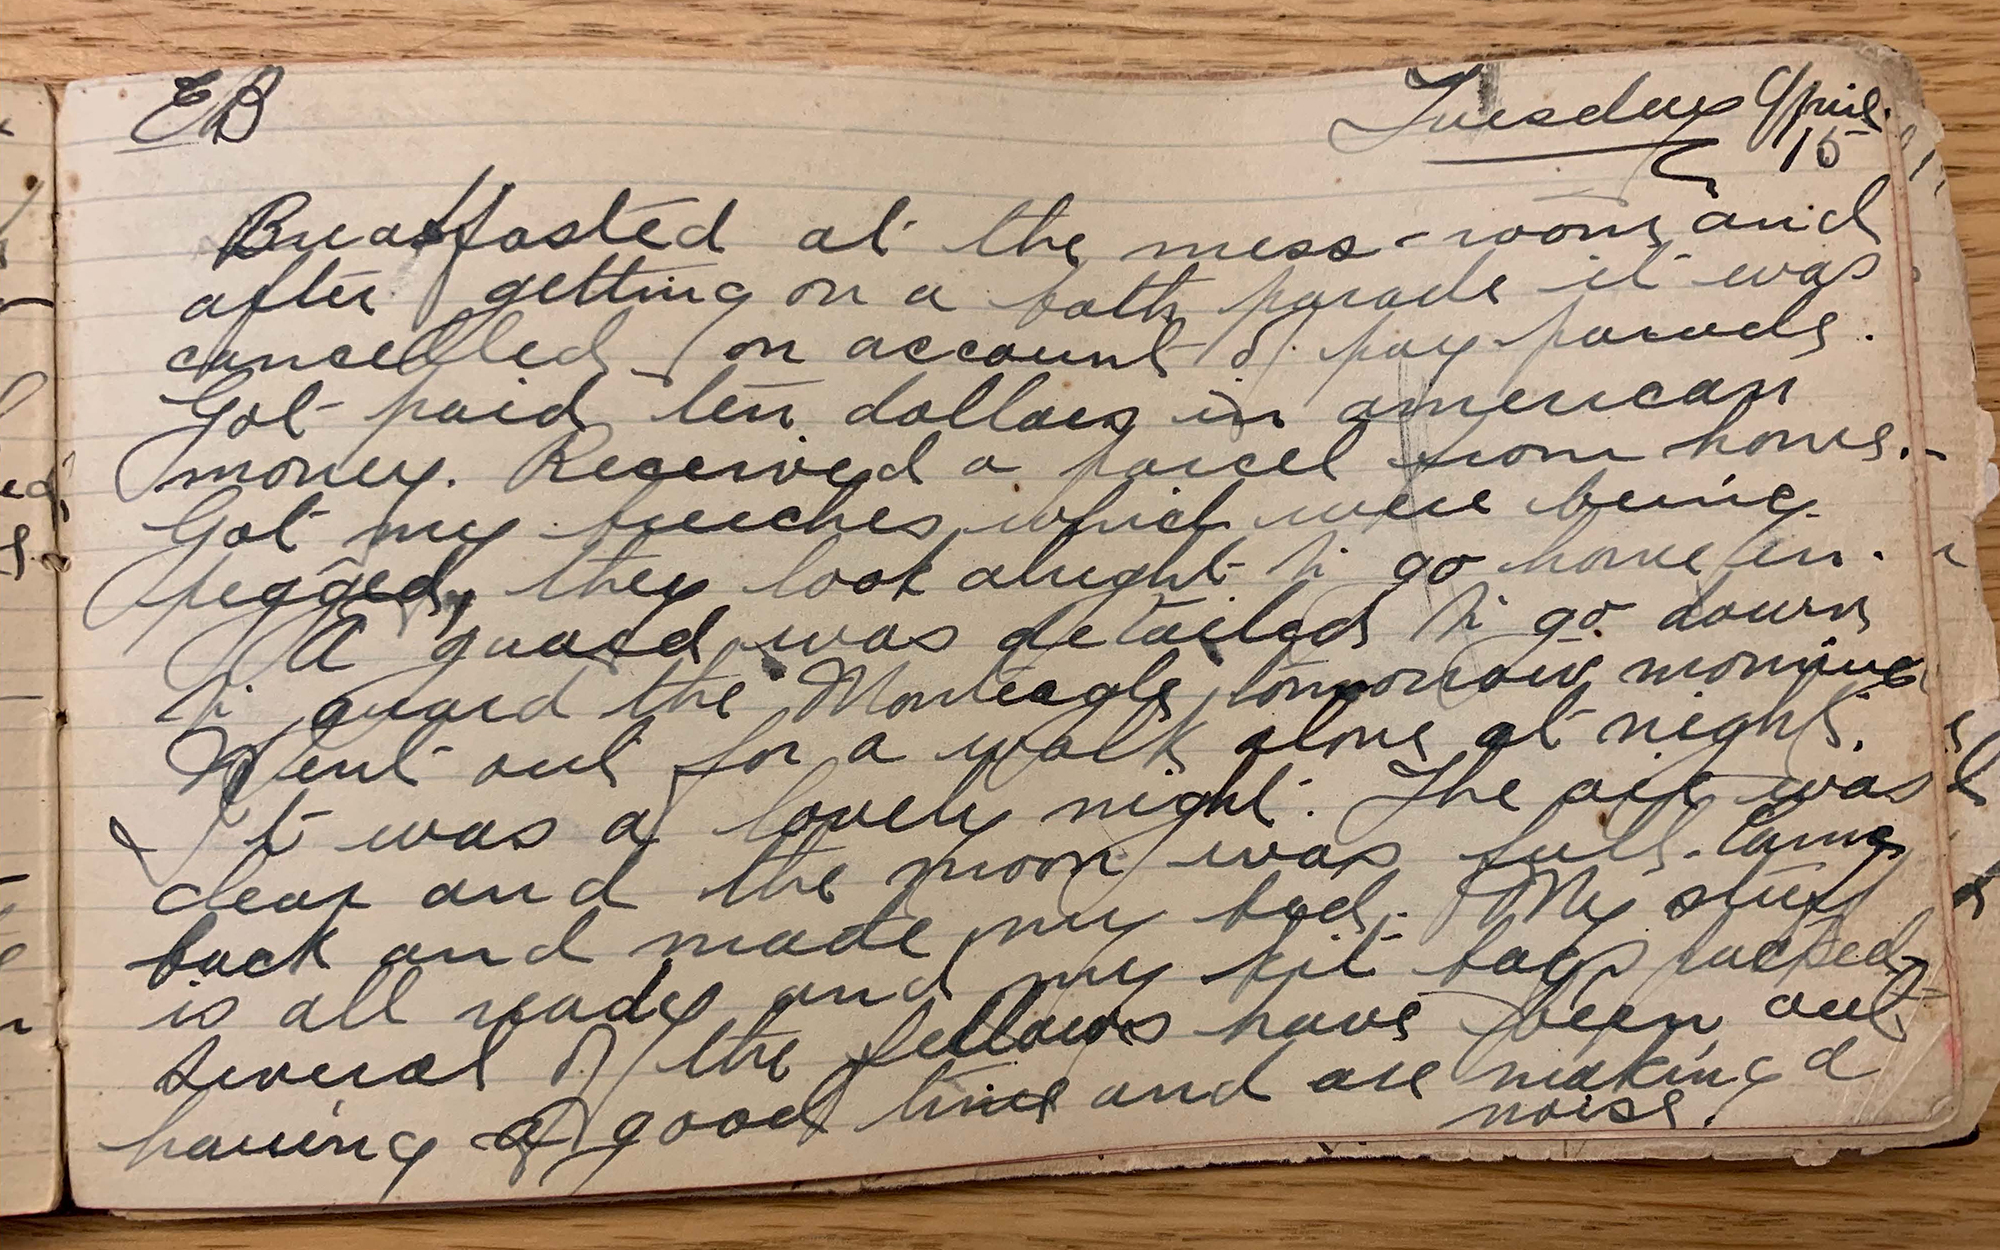 EB
Tuesday April
15
Breakfasted at the mess-room and
after getting on a bath parade it was
cancelled on account of pay parade.
Got paid ten dollars in american
money. Received a parcel from home.-
Got my breeches which were being
pegged, they look alright to go home in.
A guard was detailed to go down
to guard the Monteagle tomorrow morning
Went out for a walk alone at night.
It was a lovely night. The air was
clear and the moon was full. Came
back and made my bed. My stuff
is all ready and my kit bags packed-
several of the fellows have been out
having a good time and are making a
noise.